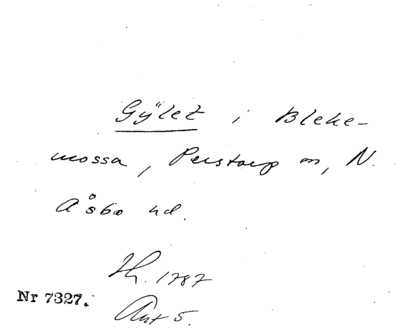 Gÿlet i Bleke-
mossa, Perstorp sn, N.
Åsbo hd.
Th. 1787
Ant 5.
Nr 7327.